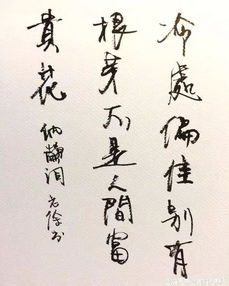 冷處偏佳别有
根芽不是人間富
貴花 纳蘭词